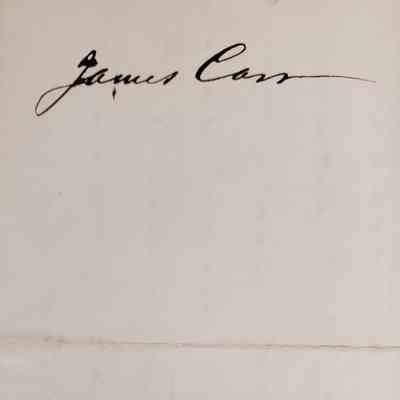 James Carr